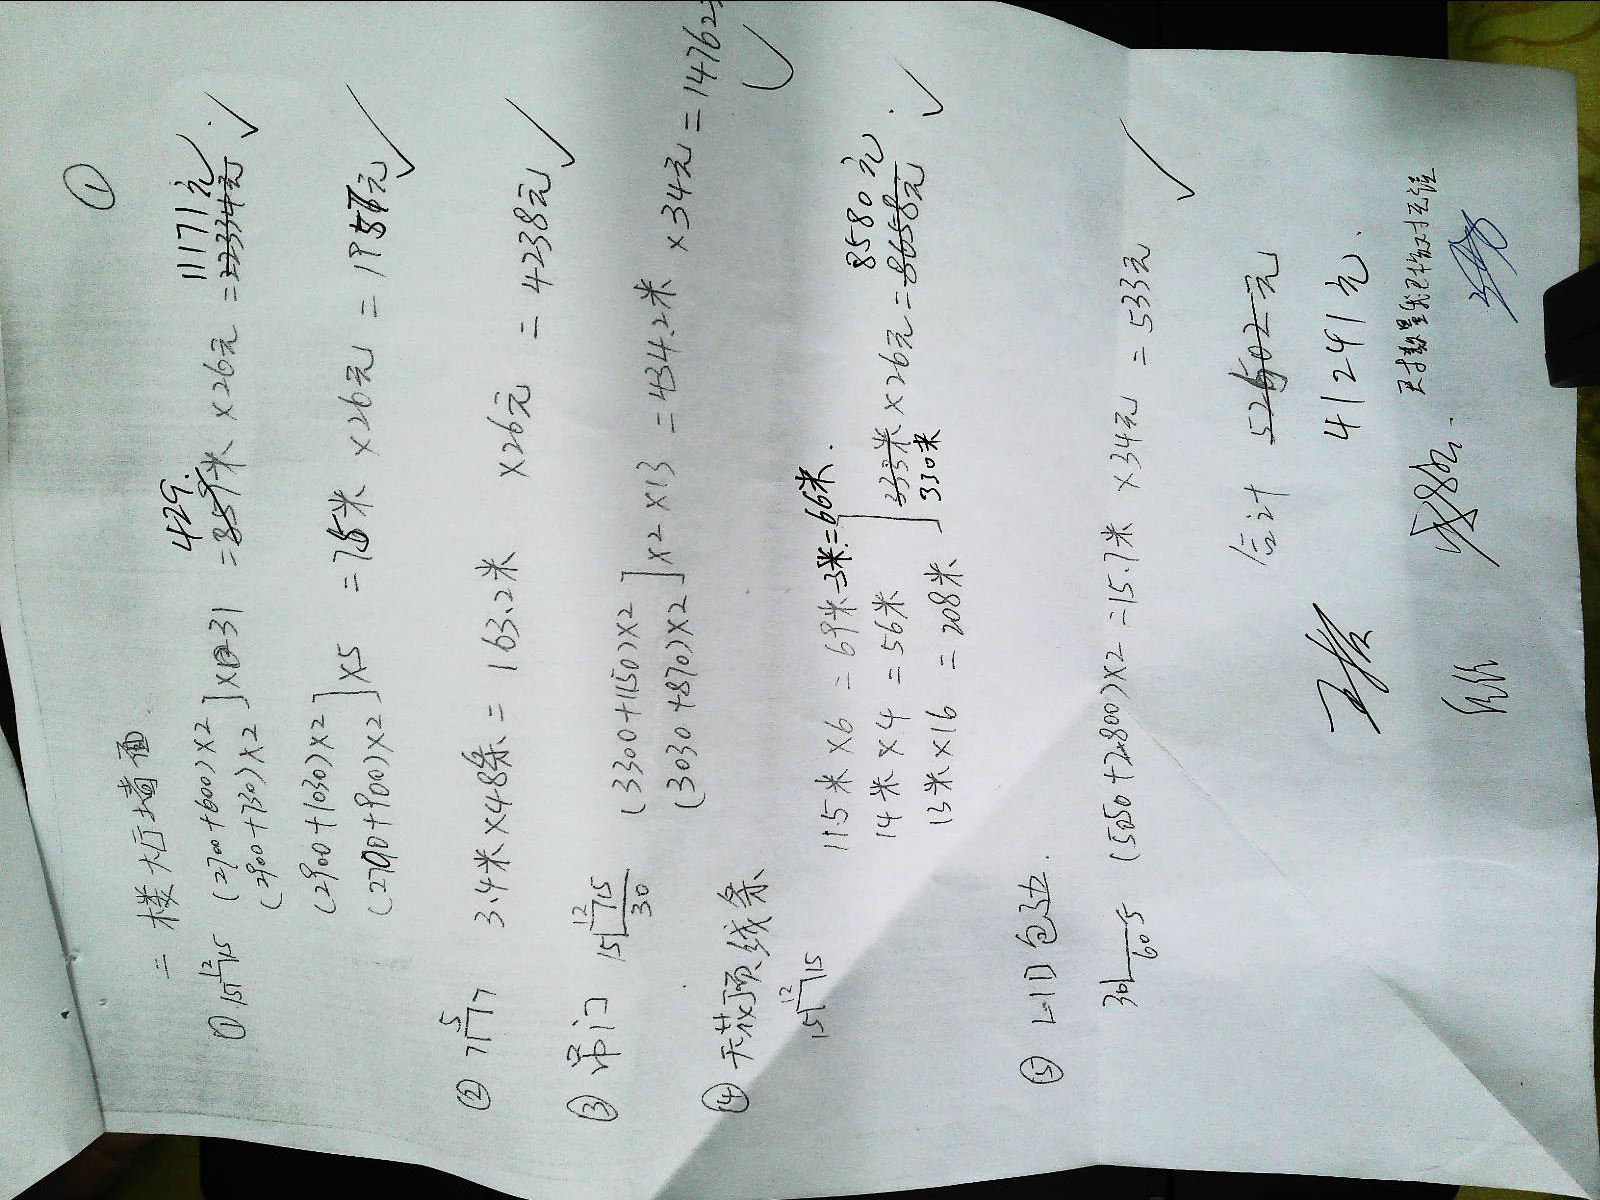 ①
二楼大厅墙面
① 15 12 15 (2700+600)×2
(2900+730)×2 ]×31 =859米 429. ×26元 =22334元 11171元.
(2900+1030)×2
(2790+900)×2 ]×5 =75米 ×26元 =1957元
② 7 5 7 3.4米×48条= 163.2米 ×26元 =4238元
③ 吊门 15 12 15 30 (3300+1150)×2
(3030+870)×2 ]×2×13 =434.2米 ×34元=14762
④ 天花顶线条
15 12 15 115米×6 =69米-3米=66米.
14米×4 =56米 333米×26元=8658元 8580元.
13米×16 =208米 330米
⑤ LED包边.
30 60 5 (5050+2800)×2=15.7米 ×34元 =533元
合计 52502元
41241元.